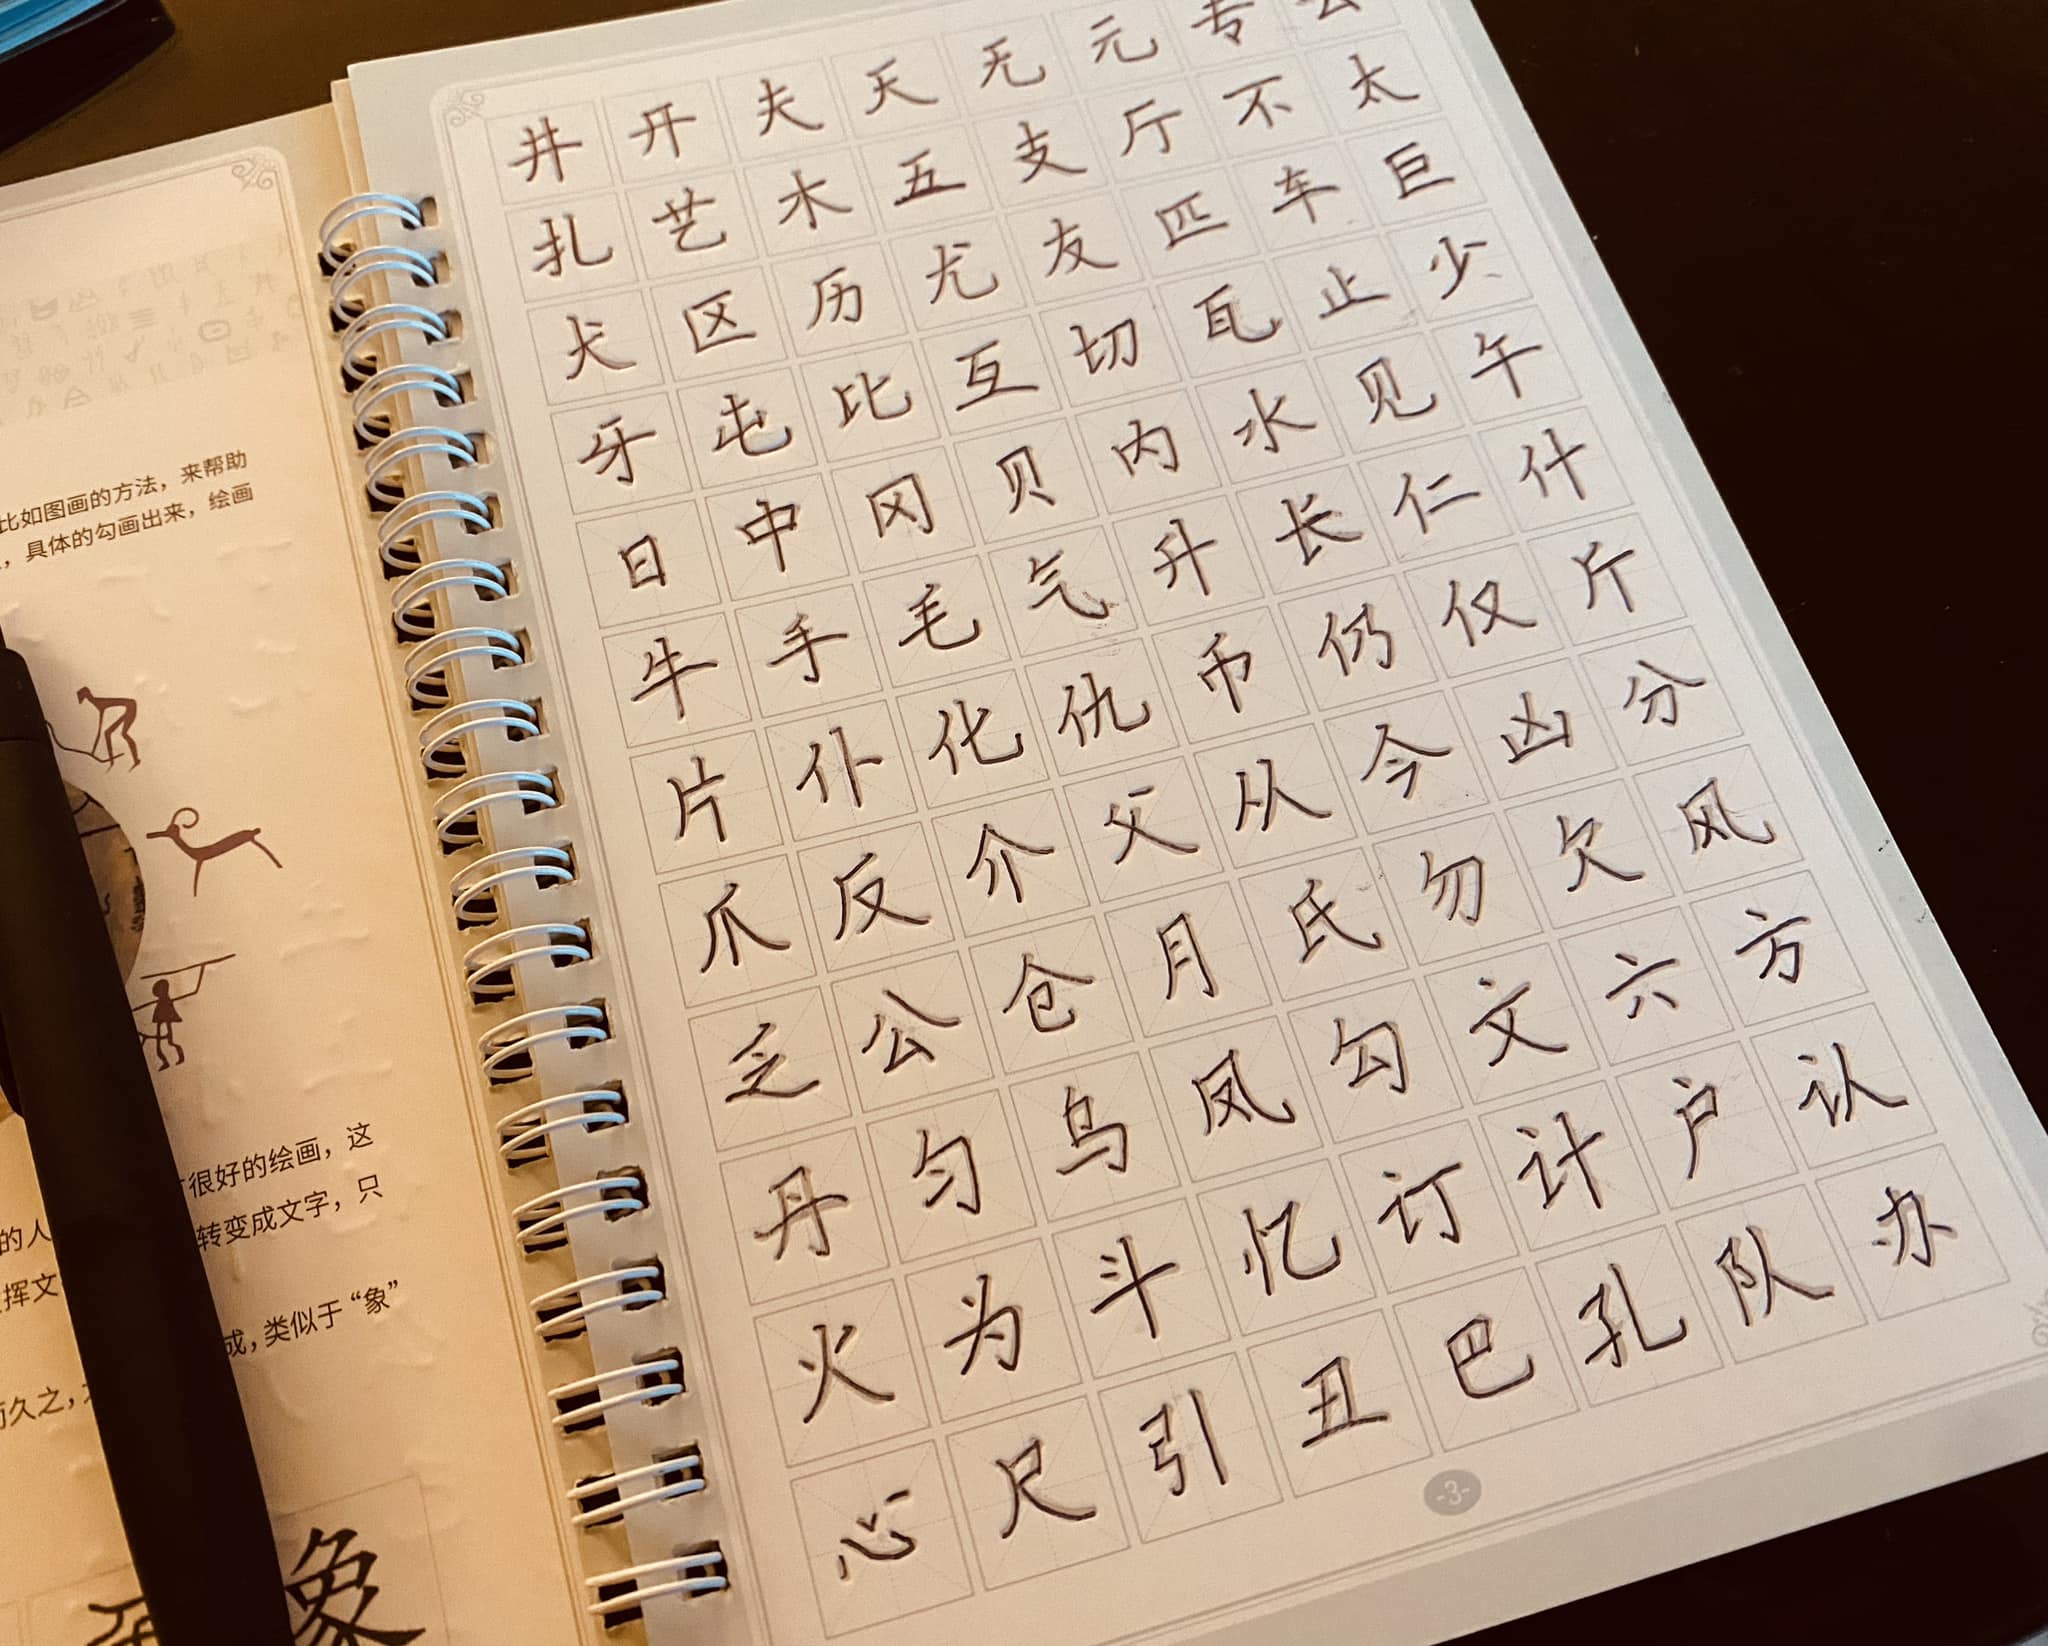 比如图画的方法，来帮助
，具体的勾画出来，绘画
的人 很好的绘画，这
挥文 转变成文字，只
久之， 成，类似于“象”
象
井开夫天无元专云
扎艺木五支厅不太
犬区历尤友匹车巨
牙屯比互切瓦止少
日中冈贝内水见午
牛手毛气升长仁什
片仆化仇币仍仅斤
爪反介父从今凶分
乏公仓月氏勿欠风
丹匀乌凤勾文六方
火为斗忆订计户认
心尺引丑巴孔队办
-3-